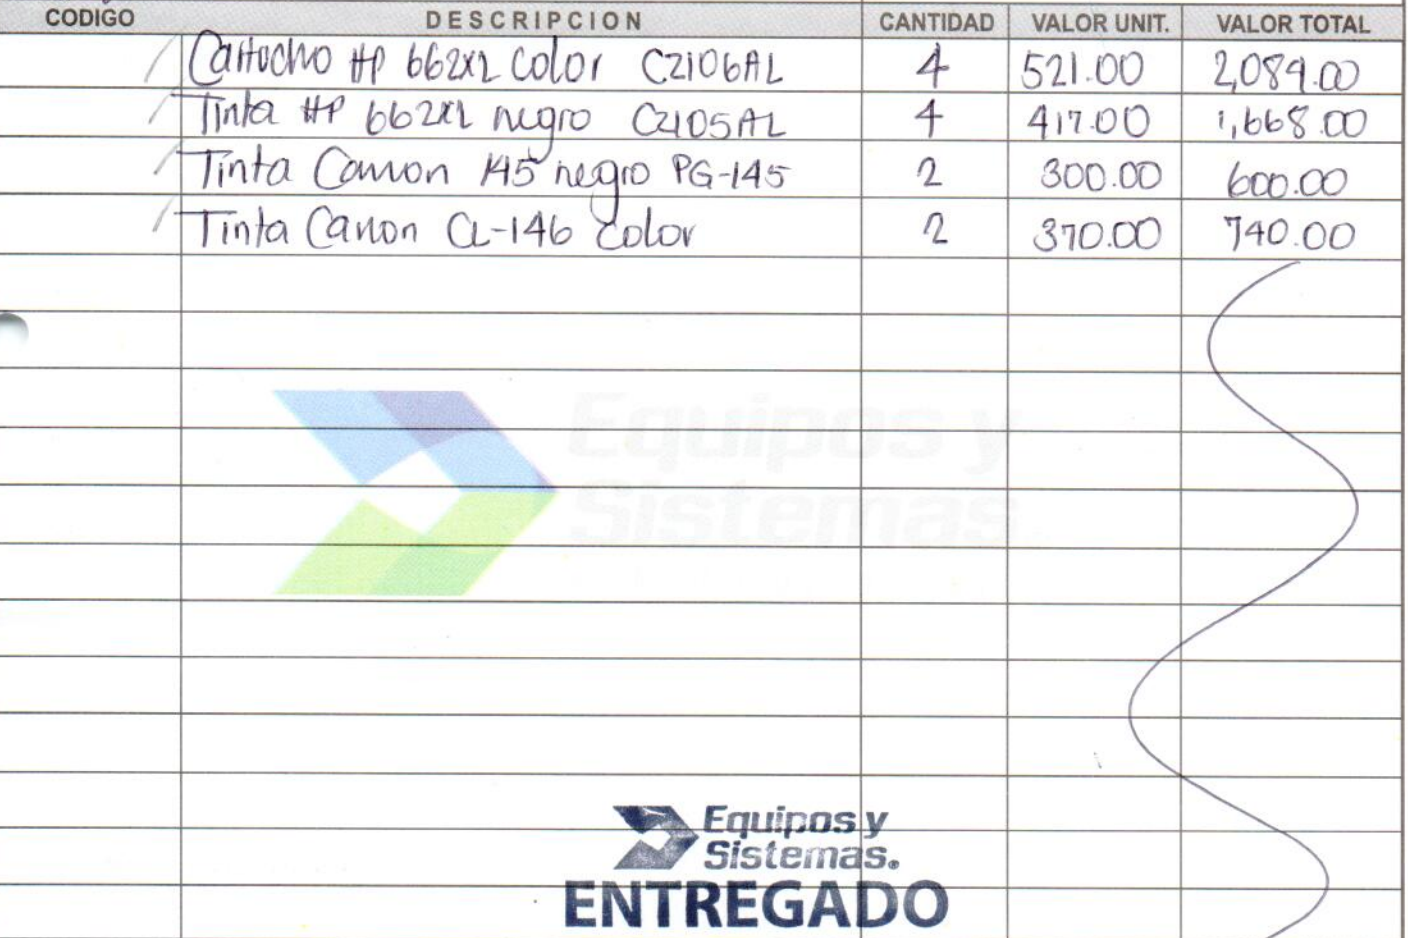 CODIGO DESCRIPCION CANTIDAD VALOR UNIT. VALOR TOTAL
Cartucho HP 662XL Color CZ106AL 4 521.00 2,084.00
Tinta HP 662XL negro CZ105AL 4 417.00 1,668.00
Tinta Canon 145 negro PG-145 2 300.00 600.00
Tinta Canon CL-146 Color 2 370.00 740.00
Equipos y
Sistemas
Equipos y
Sistemas.
ENTREGADO